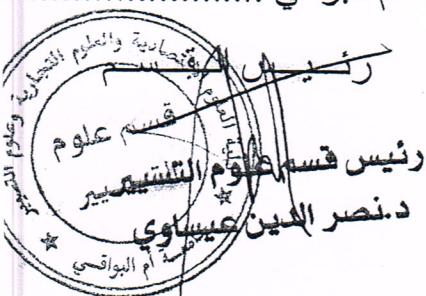 أم البواقي ..........................
رئيس القسم
رئيس قسم علوم التسيير
د.نصر الدين عيساوي
الاقتصادية والعلوم التجارية وعلوم التسيير
قسم علوم
أم البواقي